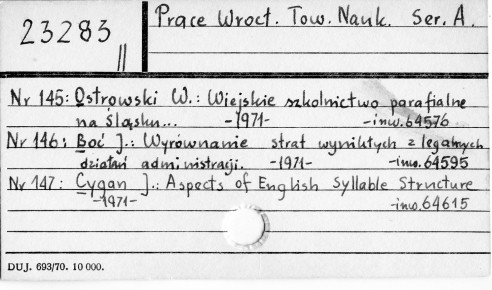 23283 II
Prace Wrocł. Tow. Nauk. Ser. A.
Nr 145: Ostrowski W.: Wiejskie szkolnictwo parafialne
na Śląsku... -1971- -inw. 64576
Nr 146: Boć J.: Wyrównanie strat wynikłych z legalnych
działań administracji. -1971- -inw. 64595
Nr 147: Cygan J.: Aspects of English Syllable Structure
-1971- -inw. 64615
DUJ. 693/70. 10 000.